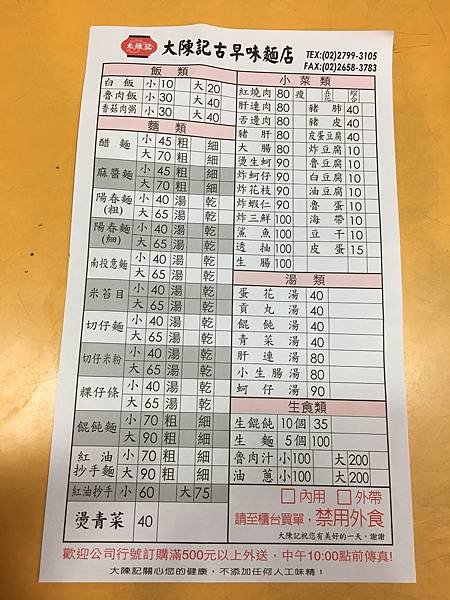 大陳記
大陳記古早味麵店
TEX:(02)2799-3105
FAX:(02)2658-3783
飯類
白飯 小10 大20
魯肉飯 小30 大40
香菇肉粥 小30 大40
麵類
醋麵 小 45 粗 細
大 70 粗 細
麻醬麵 小 45 粗 細
大 70 粗 細
陽春麵(粗) 小 40 湯 乾
大 65 湯 乾
陽春麵(細) 小 40 湯 乾
大 65 湯 乾
南投意麵 小 40 湯 乾
大 65 湯 乾
米苔目 小 40 湯 乾
大 65 湯 乾
切仔麵 小 40 湯 乾
大 65 湯 乾
切仔米粉 小 40 湯 乾
大 65 湯 乾
粿仔條 小 40 湯 乾
大 65 湯 乾
餛飩麵 小 70 粗 細
大 90 粗 細
紅油抄手麵 小 70 粗 細
大 90 粗 細
紅油抄手 小 60 大75
燙青菜 40
小菜類
紅燒肉 80 瘦 五花 綜合
肝連肉 80 豬肺 40
舌邊肉 80 豬皮 40
豬肝 80 皮蛋豆腐 40
大腸 80 炸豆腐 10
燙生蚵 90 魯豆腐 10
炸蚵仔 90 白豆腐 10
炸花枝 90 油豆腐 10
炸蝦仁 90 魯蛋 10
炸三鮮 100 海帶 10
鯊魚 100 豆干 10
透抽 100 皮蛋 15
生腸 100
湯類
蛋花湯 40
貢丸湯 40
餛飩湯 40
青菜湯 40
肝連湯 80
小生腸湯 80
蚵仔湯 90
生食類
生餛飩 10個 35
生麵 5個 100
魯肉汁 小100 大200
油蔥 小100 大200
□內用 □外帶
請至櫃台買單，禁用外食
大陳記祝您有美好的一天，謝謝
歡迎公司行號訂購滿500元以上外送，中午10:00點前傳真!
大陳記關心您的健康，不添加任何人工味精！